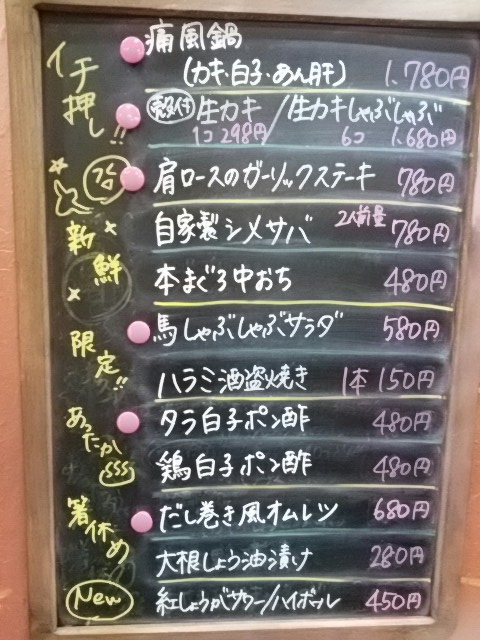 イチ押し!!
痛風鍋
(カキ・白子・あん肝) 1,780円
殻付 生カキ/生カキしゃぶしゃぶ
1コ 298円 6コ 1,680円
肩ロースのガーリックステーキ 780円
新鮮
自家製シメサバ 2人前量 780円
本まぐろ中おち 480円
限定!!
馬しゃぶしゃぶサラダ 580円
ハラミ酒盗焼き 1本 150円
あったか
タラ白子ポン酢 480円
鶏白子ポン酢 480円
箸休め
だし巻き風オムレツ 680円
大根しょう油漬け 280円
New
紅しょうがサワー/ハイボール 450円